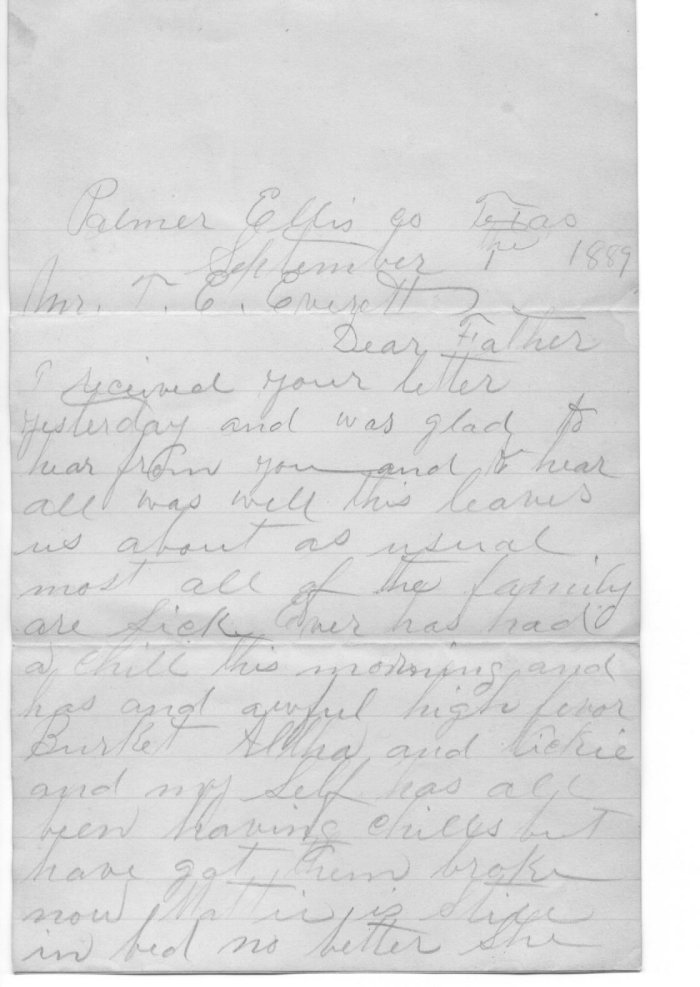 Palmer Ellis co Texas
September 1 the 1889
Mr. T. E. Everett
Dear Father
I received your letter
yesterday and was glad to
hear from you and to hear
all was well this leaves
us about as usual
most all of the family
are sick Ever has had
a chill this morning and
has and awful high fevor
Burket and
and my self has all
ben having chills but
have got them broke
now Mattie is still
in bed no better She